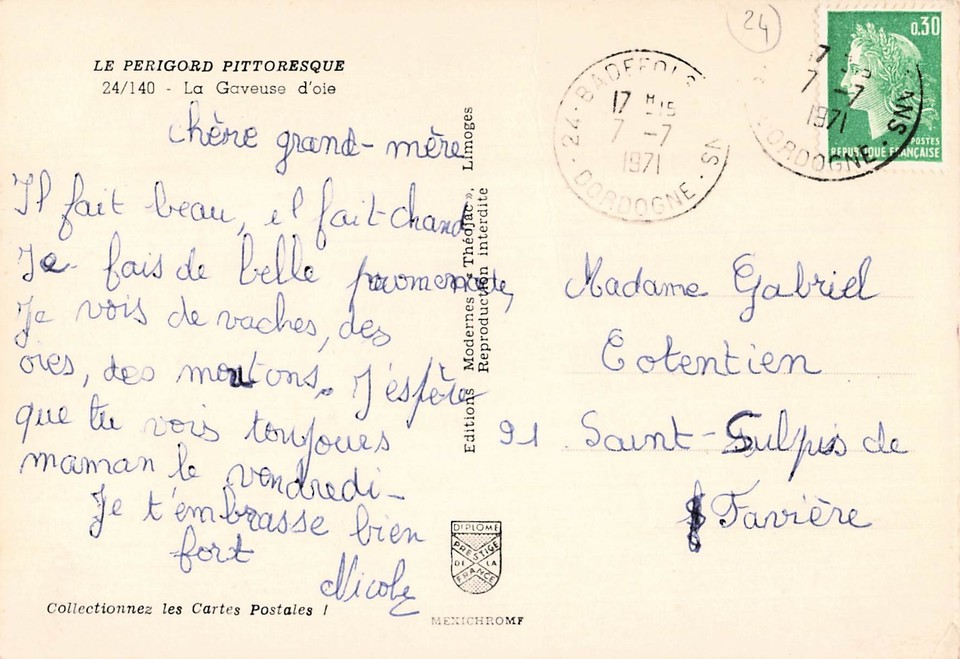 LE PERIGORD PITTORESQUE
24/140 - La Gaveuse d'oie
chère grand-mère
Il fait beau, il fait chaud
Je fais de belle promenade,
Je vois de vaches, des
oies, des moutons. J'éspère
que tu vois toujours
maman le vendredi-
Je t'embrasse bien
fort
Nicole
Collectionnez les Cartes Postales !
Editions Modernes « Théojac », Limoges
Reproduction interdite
DIPLOME
PRESTIGE
DE LA
FRANCE
MEXICHROME
24
24-BADEFOLS
17 H 15
7 -7
1971
DORDOGNE
0.30
POSTES
REPUBLIQUE FRANÇAISE
17 H 15
7 -7
1971
DORDOGNE
Madame Gabriel
Cotentien
91 Saint-Sulpis de
Favière